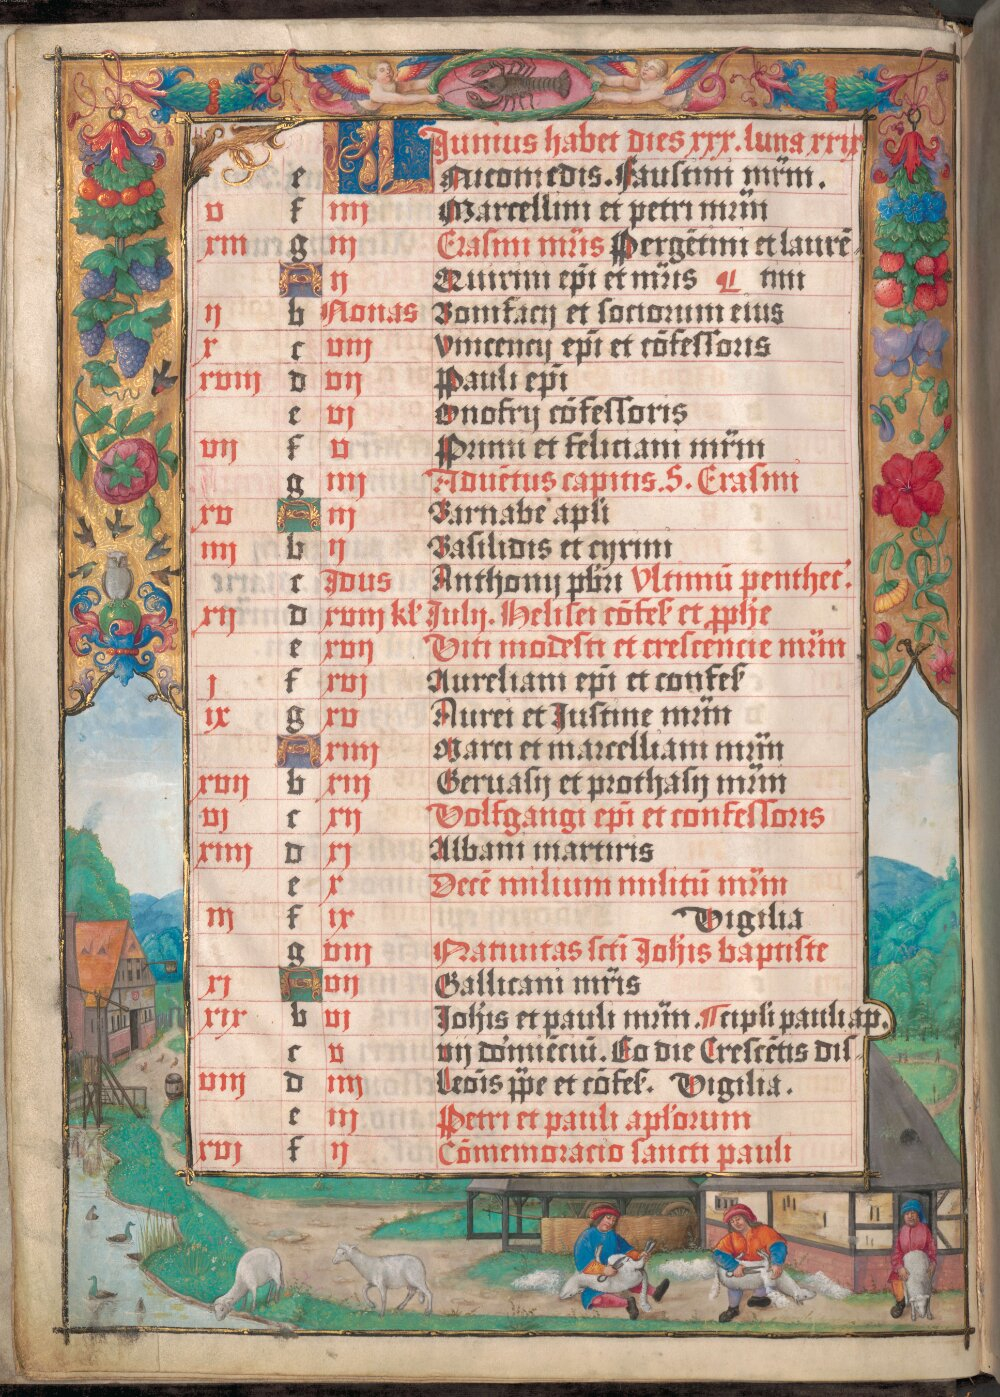 KL Junius habet dies xxx. luna xxix
e Nicomedis. Faustini mr̄m.
v f iiij Marcellini et petri mr̄m
xiij g iij Erasmi mr̄is Pergētini et laurē-
A ij Quirini ep̄i et mr̄is ¶ tini
ij b Nonas Bonifacij et sociorum eius
x c viij Vincencij ep̄i et cōfessoris
xviij d vij Pauli ep̄i
e vj Onofrij cōfessoris
vij f v Primi et feliciani mr̄m
g iiij Advētus capitis. S. Erasmi
xv A iij Barnabe apli
iiij b ij Basilidis et cyrini
c Jdus Anthonij pb̄ri Vltimū penthec̄.
xij d xviij kl' Julij. Helisei cōfes̄ et ꝓphe
e xvij Viti modesti et crescencie mr̄m
j f xvj Aureliani ep̄i et confes̄
ix g xv Aurei et Justine mr̄m
A xiiij Marci et marcelliani mr̄m
xvij b xiij Gervasij et prothasij mr̄m
vj c xij Volfgangi ep̄i et confessoris
xiiij d xj Albani martiris
e x Decē milium militū mr̄m
iij f ix Vigilia
g viij Nativitas sc̄ti Joh̄is baptiste
xj A vij Gallicani mr̄is
xix b vj Joh̄is et pauli mr̄m. ¶cipli pauli ap.
c v vij dormiēciū. Eo die Crescētis dis-
viij d iiij Leōis pp̄e et cōfes̄. Vigilia.
e iij Petri et pauli apl'orum
xvj f ij Cōmemoracio sancti pauli